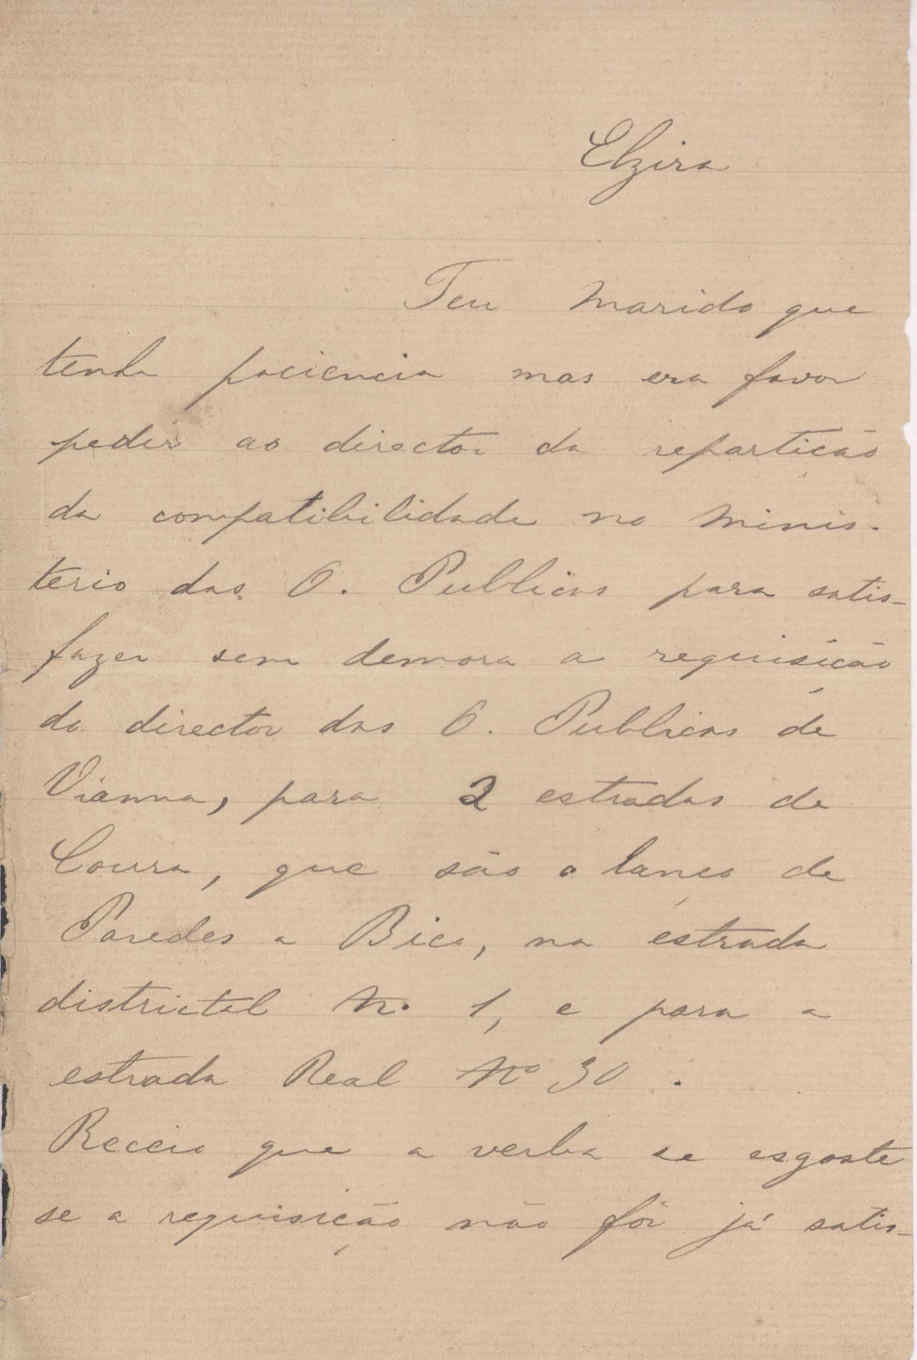 Elzira
Teu marido que
tenha paciencia mas era favor
pedir ao director da repartição
da compatibilidade no minis-
terio das O. Publicas para satis-
fazer sem demora a requisição
do director das O. Publicas de
Vianna, para 2 estradas de
Coura, que são o lanço de
Paredes a Bico, na estrada
districtal Nº 1, e para a
estrada Real Nº 30.
Receio que a verba se esgote
se a requisição não fôr já satis-